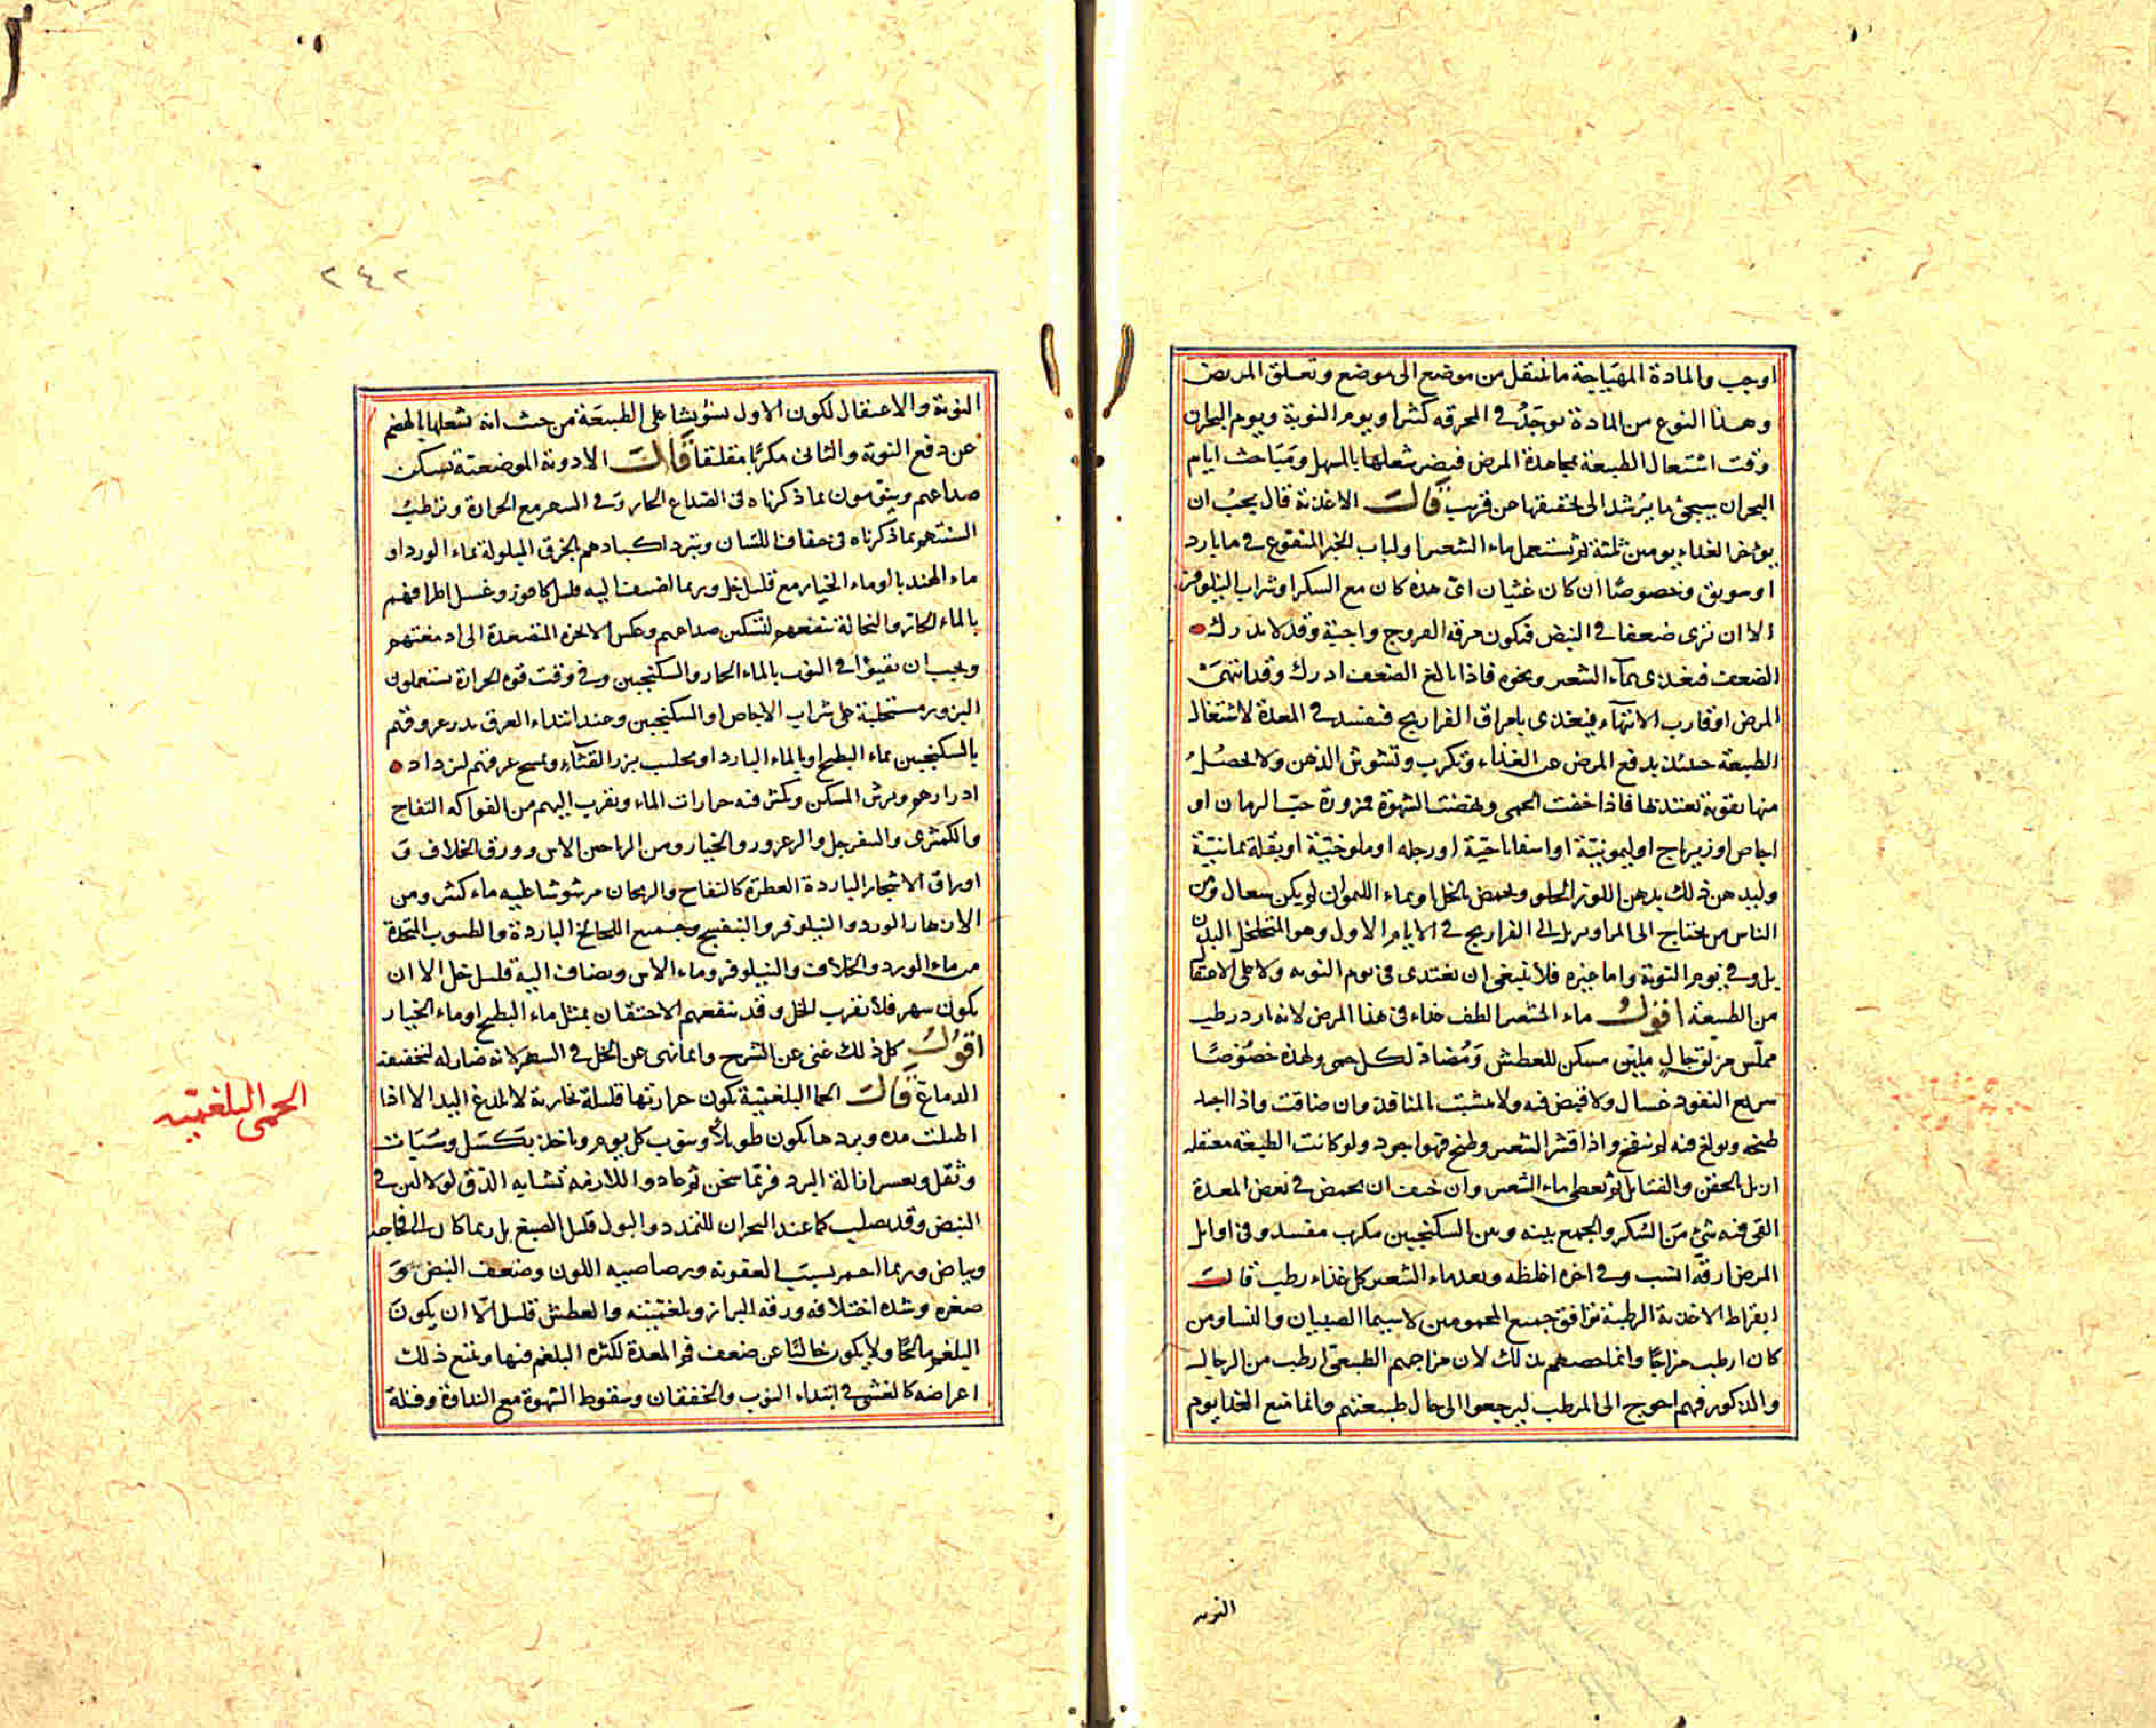 اوجب والمادة المهياجة ما تنتقل من موضع الى موضع وتعلق المريض
وهذا النوع من المادة يوجد في المحرقه كثيرا ويوم النوبة ويوم البحران
وقت اشتعال الطبيعة بمجاهدة المرض فيضر شغلها بالمسهل ومباحث ايام
البحران سيجئ ما يرشد الى تحقيقها عن قريب قال الاغذية قال يجب ان
يؤخر الغذاء يومين ثلثة ثم يستعمل ماء الشعير او لباب الخبز المنقوع في ماء بارد
او سويق وخصوصا ان كان غثيان اى هذه كان مع السكر او شراب النيلوفر
الا ان ترى ضعفا في النبض فيكون مرقه الفروج واجبة وقد لا يدرك
الضعف فيغذى بماء الشعير ونحوه فاذا بالغ الضعف ادرك وقد انتهى
المرض او قارب الانتهاء فيغذى بامراق الفراريج فيفسد في المعدة لاشتغال
الطبيعة حينئذ بدفع المرض عن الغذاء وتكرب وتشوش الذهن ولا يحصل
منها تقوية يعتد بها فاذا خفت الحمى ونهضت الشهوة فمزورة حب الرمان او
اجاص او زيرباج او ليمونية او اسفاناخية او رجله او ملوخية او بقلة يمانية
وليدهن ذلك بدهن اللوز الحلو ويحمض بالخل او بماء الليمو ان لم يكن سعال ومن
الناس من يحتاج الى المراوير بل الى الفراريج في الايام الاول وهو المتخلخل البدن
بل وفي يوم النوبة واما غيره فلا ينبغى ان يغتذى في يوم النوبه ولا على الاعتقال
من الطبيعة اقول ماء الشعير الطف غذاء في هذا المرض لانه ارد رطب
مملس مزلق جال ملين مسكن للعطش ومضاد لكل حمى ولهذه خصوصا
سريع النفوذ غسال ولا قبض فيه ولا يتشبت بالمنافذ وان ضاقت واذا اجيد
طبخه وبولغ فيه لم ينفخ واذا قشر الشعير وطبخ فهو اجود ولو كانت الطبيعة معتقله
ازيل بالحقن والفتايل ثم يعطى ماء الشعير وان خيف ان يحمض في بعض المعدة
القى فيه شئ من السكر والجمع بينه وبين السكنجبين مكرب مفسد وفي اوايل
المرض ارقه انسب وفي اخره اغلظه وبعد ماء الشعير كل غذاء رطب قال
ابقراط الاغذية الرطبة توافق جميع المحمومين لاسيما الصبيان والنسا ومن
كان ارطب مزاجا وانما خصهم بذلك لان مزاجهم الطبيعى ارطب من الرجال
والذكور فهم احوج الى المرطب ليرجعوا الى حال طبيعتهم وانما منع الغذا يوم
النوبه
٢٤٢
النوبة والاعتقال لكون الاول تشويشا على الطبيعة من حيث انه تشغلها بالهضم
عن دفع النوبة والثانى مكربا مقلقا قال الادوية الموضعية تسكن
صداعهم وينومون بما ذكرناه في الصداع الحار وفي السهر مع الحرارة وترطب
السنتهم بما ذكرناه في جفاف اللسان ويبرد اكبادهم بالخرق المبلولة بماء الورد او
ماء الهندبا او ماء الخيار مع قليل خل وربما اضيف اليه قليل كافور وغسل اطرافهم
بالماء الحار والنخالة تنفعهم لتسكين صداعهم وعكس الابخرة المتصعدة الى ادمغتهم
ويجب ان يقيؤا في النوب بالماء الحار والسكنجبين وفي وقت قوة الحرارة يستعملون
البزور مستحلبة على شراب الاجاص او السكنجبين وعند ابتداء العرق يدر عروقهم
بالسكنجبين بماء البطيخ او بالماء البارد او بحلب بزر القثاء ويمسح عرقهم ليزداد
ادرارهم ويرش المسكن ويكثر فيه حرارات الماء ويقرب اليهم من الفواكه التفاح
والكمثرى والسفرجل والزعرور والخيار ومن الرياحين الاس وورق الخلاف و
اوراق الاشجار الباردة العطرة كالتفاح والريحان مرشوشا عليه ماء كثير ومن
الازهار الورد والنيلوفر والبنفسج وجميع اللخالخ الباردة والطيوب المتخذة
من ماء الورد والخلاف والنيلوفر وماء الاس ويضاف اليه قليل خل الا ان
يكون سهر فلا تقرب الخل وقد ينفعهم الاحتقان بمثل ماء البطيخ او ماء الخيار
اقول كل ذلك غنى عن الشرح وانما نهى عن الخل في السهر لانه ضار له لتخفيفه
الدماغ قال الحما البلغمية تكون حرارتها قليلة بخارية لا تلدغ اليد الا اذا
اطيلت مده وبردها يكون طويلا وينوب كل يوم وياخذ بكسل وسبات
وثقل ويعسر ازالة البرد فربما سخن ثم عاد واللازمه تشابه الدق لولا لين في
النبض وقد يصلب كما عند البحران للتمدد والبول قليل الصبغ بل ربما كان الى فجاجه
وبياض وربما احمر بسبب العفونه ورصاصيه اللون وضعف النبض و
صغره وشده اختلافه ورقه البراز وبلغميته والعطش قليل الا ان يكون
البلغم مالحا ولا يكون خاليا عن ضعف فم المعدة لكثره البلغم فيها ويتبع ذلك
اعراضه كالغشى في ابتداء النوب والخفقان وسقوط الشهوة مع النداوة وقلة
الحمى البلغميه